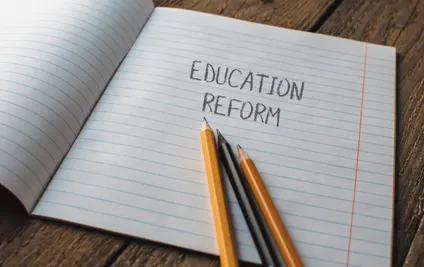 EDUCATION
REFORM